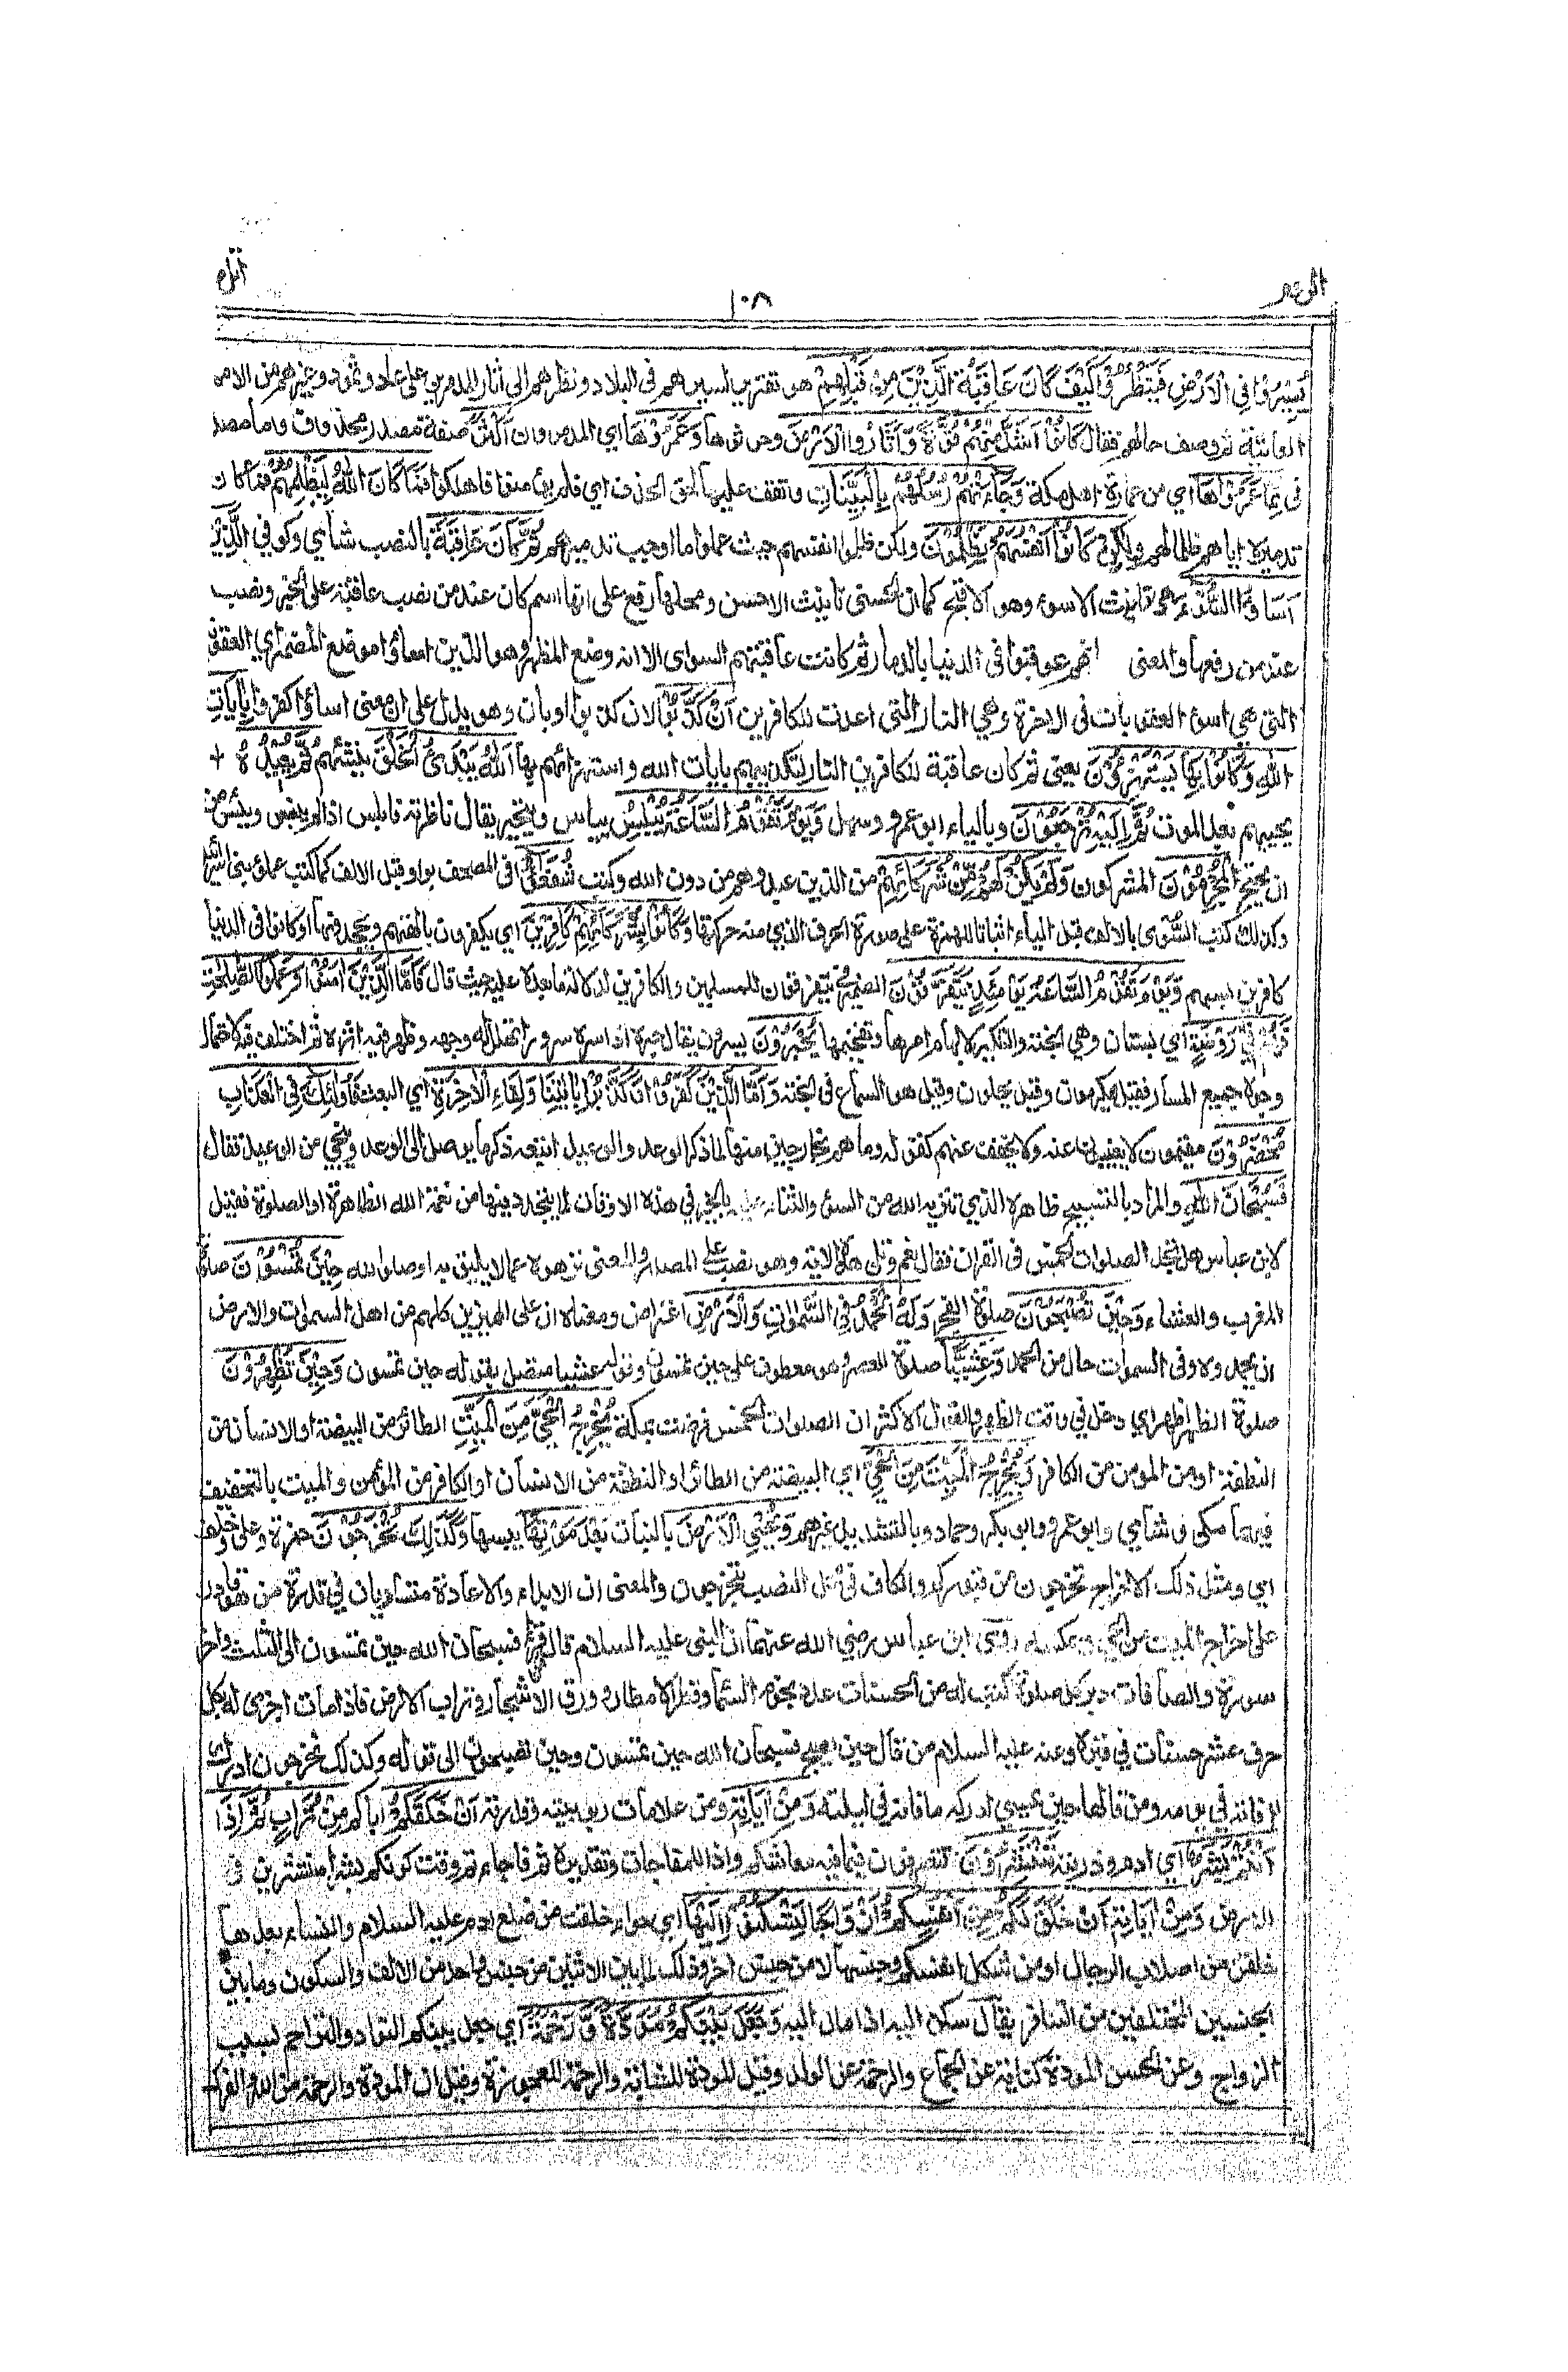 الروم
١٠٨
اتل
يَسِيْرُوْا فِي الْاَرْضِ فَيَنْظُرُوْا كَيْفَ كَانَ عَاقِبَةُ الَّذِيْنَ مِنْ قَبْلِهِمْ هو تقرير لسيرهم في البلاد ونظرهم الى اثار المدمرين على عاد وثمود وغيرهم من الامم
العاتية ثم وصف حالهم فقال كَانُوْا اَشَدَّ مِنْهُمْ قُوَّةً وَّاَثَارُوا الْاَرْضَ وحرثوها وَعَمَرُوْهَا اي المدمرون اَكْثَرَ صفة مصدر محذوف وما مصدرية
في مِمَّا عَمَرُوْهَا اي من عمارة اهل مكة وَجَاءَتْهُمْ رُسُلُهُمْ بِالْبَيِّنَاتِ وتقف عليها لحق الحذف اي فلم يؤمنوا فاهلكوا فَمَا كَانَ اللّٰهُ لِيَظْلِمَهُمْ فما كان
تدميره اياهم ظلما لهم وَلٰكِنْ كَانُوْا اَنْفُسَهُمْ يَظْلِمُوْنَ ولكن ظلموا انفسهم حيث عملوا ما اوجب تدميرهم ثُمَّ كَانَ عَاقِبَةَ بالنصب شامي وكوفي الَّذِيْنَ
اَسَاءُوا السُّوْاٰى هي تانيث الاسوء وهو الاقبح كما ان الحسنى تانيث الاحسن ومحلها رفع على انها اسم كان عند من نصب عاقبة على الخبر ونصب
عند من رفعها والمعنى انهم عوقبوا في الدنيا بالدمار ثم كانت عاقبتهم السواى الا انه وضع المظهر وهو الذين اساؤا موضع المضمر اي العقوبة
التي هي اسوء العقوبات في الاخرة وهي النار التي اعدت للكافرين اَنْ كَذَّبُوْا لان كذبوا او بان وهو يدل على ان معنى اساؤا كفروا بِاٰيَاتِ
اللّٰهِ وَكَانُوْا بِهَا يَسْتَهْزِءُوْنَ يعني ثم كان عاقبة للكافرين النار لتكذيبهم بايات الله واستهزائهم بها اَللّٰهُ يَبْدَئُ الْخَلْقَ ينشئهم ثُمَّ يُعِيْدُهُ
يحييهم بعد الموت ثُمَّ اِلَيْهِ تُرْجَعُوْنَ وبالياء ابو عمرو وسهل وَيَوْمَ تَقُوْمُ السَّاعَةُ يُبْلِسُ يياس ويتحير يقال ناظرته فابلس اذا لم ينبس ويئس من
ان يحتج الْمُجْرِمُوْنَ المشركون وَلَمْ يَكُنْ لَهُمْ مِّنْ شُرَكَائِهِمْ من الذين عبدوهم من دون الله وكتب شُفَعٰؤُا في المصحف بواو قبل الالف كما كتب علمؤ بني اسرائيل
وكذلك كتب السُّوْاى بالالف قبل الياء اثباتا للهمزة على صورة الحرف الذي منه حركتها وَكَانُوْا بِشُرَكَائِهِمْ كَافِرِيْنَ اي يكفرون بالهتهم ويجحدونها او كانوا في الدنيا
كافرين بسببهم وَيَوْمَ تَقُوْمُ السَّاعَةُ يَوْمَئِذٍ يَّتَفَرَّقُوْنَ الضمير في يتفرقون للمسلمين والكافرين لدلالة ما بعده عليه حيث قال فَاَمَّا الَّذِيْنَ اٰمَنُوْا وَعَمِلُوا الصّٰلِحٰتِ
فَهُمْ فِيْ رَوْضَةٍ اي بستان وهي الجنة والتنكير لابهام امرها وتفخيمها يُحْبَرُوْنَ يسرون يقال حبره اذا سره سرورا تهلل له وجهه وظهر فيه اثره ثم اختلف فيه لاحتمال
وجوه جميع المسار فقيل يكرمون وقيل يحلون وقيل هو السماع في الجنة وَاَمَّا الَّذِيْنَ كَفَرُوْا وَكَذَّبُوْا بِاٰيٰتِنَا وَلِقَاءِ الْاٰخِرَةِ اي البعث فَاُولٰئِكَ فِي الْعَذَابِ
مُحْضَرُوْنَ مقيمون لا يغيبون عنه ولا يخفف عنهم كقوله وما هم بخارجين منها لما ذكر الوعد والوعيد اتبعه ذكر ما يوصل الى الوعد وينجي من الوعيد فقال
فَسُبْحَانَ اللّٰهِ والمراد بالتسبيح ظاهره الذي تنزيه الله من السوء والثناء عليه بالخير في هذه الاوقات لما يتجدد فيها من نعمة الله الظاهرة او الصلوة فقيل
لابن عباس هل تجد الصلوات الخمس في القران فقال نعم وتلا هذه الاية وهو نصب على المصدر والمعنى نزهوه عما لا يليق به او صلوا لله حِيْنَ تُمْسُوْنَ صلوة
المغرب والعشاء وَحِيْنَ تُصْبِحُوْنَ صلوة الفجر وَلَهُ الْحَمْدُ فِي السَّمٰوٰتِ وَالْاَرْضِ اعتراض ومعناه ان على المميزين كلهم من اهل السموات والارض
ان يحمدوه وفي السموات حال من الحمد وَعَشِيًّا صلوة العصر وهو معطوف على حين تمسون وقوله عشيا متصل بقوله حين تمسون وَحِيْنَ تُظْهِرُوْنَ
صلوة الظهر اظهر اي دخل في وقت الظهر والقول الاكثر ان الصلوات الخمس فرضت بمكة يُخْرِجُ الْحَيَّ مِنَ الْمَيِّتِ الطائر من البيضة او الانسان من
النطفة او من المومن من الكافر وَيُخْرِجُ الْمَيِّتَ مِنَ الْحَيِّ اي البيضة من الطائر او النطفة من الانسان او الكافر من المؤمن والميت بالتخفيف
فيهما مكي وشامي وابو عمرو وابو بكر وحماد وبالتشديد غيرهم وَيُحْيِي الْاَرْضَ بالنبات بَعْدَ مَوْتِهَا يبسها وَكَذٰلِكَ تُخْرَجُوْنَ حمزة وعلي وخلف
اي ومثل ذلك الاخراج تخرجون من قبوركم والكاف في محل النصب بتخرجون والمعنى ان الابداء والاعادة متساويان في قدرة من هو قادر
على اخراج الميت من الحي وعكسه روى ابن عباس رضي الله عنهما ان النبي عليه السلام قال من قرأ فسبحان الله حين تمسون الى الثلث واخر
سورة والصافات دبر كل صلوة كتب له من الحسنات عدد نجوم السماء وقطر الامطار وورق الاشجار وتراب الارض فاذا مات اجرى له بكل
حرف عشر حسنات في قبره وعنه عليه السلام من قال حين يصبح فسبحان الله حين تمسون وحين تصبحون الى قوله وكذلك تخرجون ادرك
ما فاته في يومه ومن قالها حين يمسي ادرك ما فاته في ليلته وَمِنْ اٰيَاتِهِ ومن علامات ربوبيته وقدرته اَنْ خَلَقَكُمْ اي اباكم مِّنْ تُرَابٍ ثُمَّ اِذَا
اَنْتُمْ بَشَرٌ اي ادم وذريته تَنْتَشِرُوْنَ تتصرفون فيما فيه معاشكم واذا للمفاجات وتقديره ثم فاجاءتم وقت كونكم بشرا منتشرين في
الارض وَمِنْ اٰيَاتِهِ اَنْ خَلَقَ لَكُمْ مِّنْ اَنْفُسِكُمْ اَزْوَاجًا لِّتَسْكُنُوْا اِلَيْهَا اي حواء خلقت من ضلع ادم عليه السلام والنساء بعدها
خلقن من اصلاب الرجال او من شكل انفسكم وجنسها لا من جنس اخر وذلك لما بين الاثنين من جنس واحد من الالف والسكون وما بين
الجنسين المختلفين من التنافر يقال سكن اليه اذا مال اليه وَجَعَلَ بَيْنَكُمْ مَّوَدَّةً وَّرَحْمَةً اي جعل بينكم التواد والتراحم بسبب
الزواج وعن الحسن المودة كناية عن الجماع والرحمة عن الولد وقيل المودة للشابة والرحمة للعجوزة وقيل ان المودة والرحمة من الله والفرك